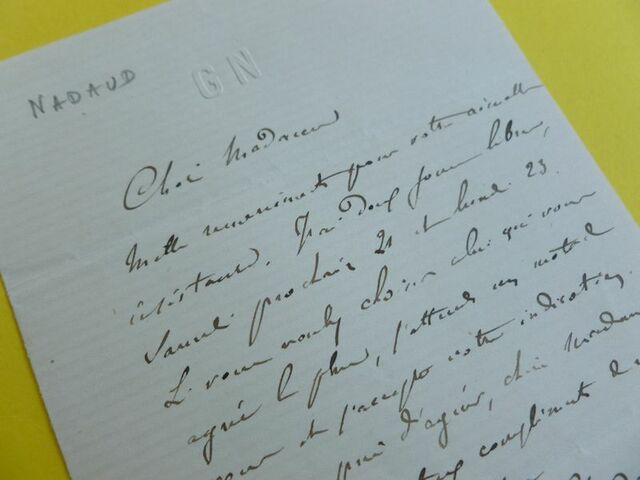 NADAUD
GN
Chère Madame
Mille remerciments pour votre aimable
insistance. J'ai deux jours libres,
Samedi prochain 21 et lundi 23.
Si vous voulez choisir celui qui vous
agrée le plus, j'attends un mot de
et j'accepte votre indication.
prié d'agréer, chère Madame
compliments de